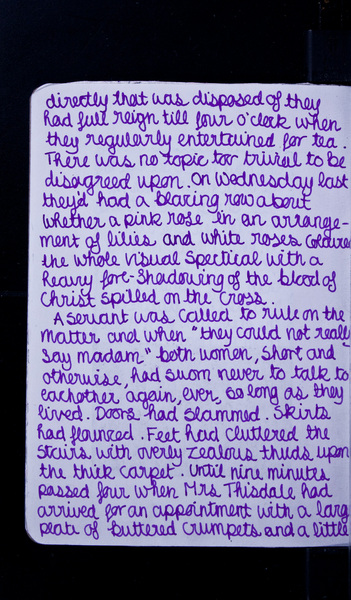 directly that was disposed of they
had full reign till four o'clock when
they regularly entertained for tea.
There was no topic too trivial to be
disagreed upon. On Wednesday last
they'd had a blaring row about
whether a pink rose in an arrange-
ment of lilies and white roses coloured
the whole visual spectical with a
heavy fore-shadowing of the blood of
Christ spilled on the cross.
A servant was called to rule on the
matter and when "they could not really
say madam" both women, short and
otherwise, had sworn never to talk to
eachother again, ever, so long as they
lived. Doors had slammed. Skirts
had flounced. Feet had cluttered the
stairs with overly zealous thuds upon
the thick carpet. Until nine minutes
passed four when Mrs Thisdale had
arrived for an appointment with a larg
plate of buttered crumpets and a little